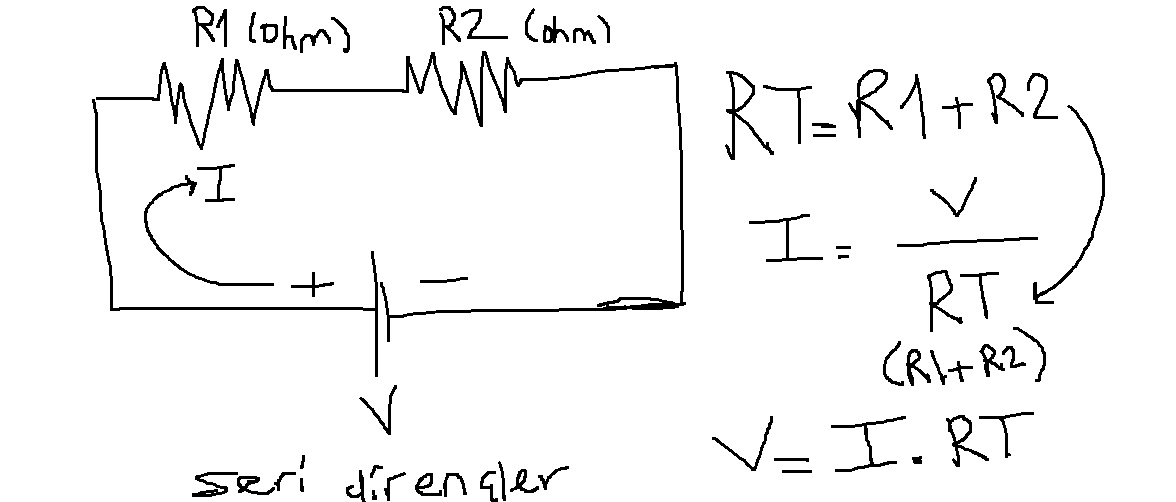 R1 (ohm) R2 (ohm)
I
+ −
V
seri dirençler
RT = R1 + R2
I = V
RT
(R1+R2)
V = I . RT